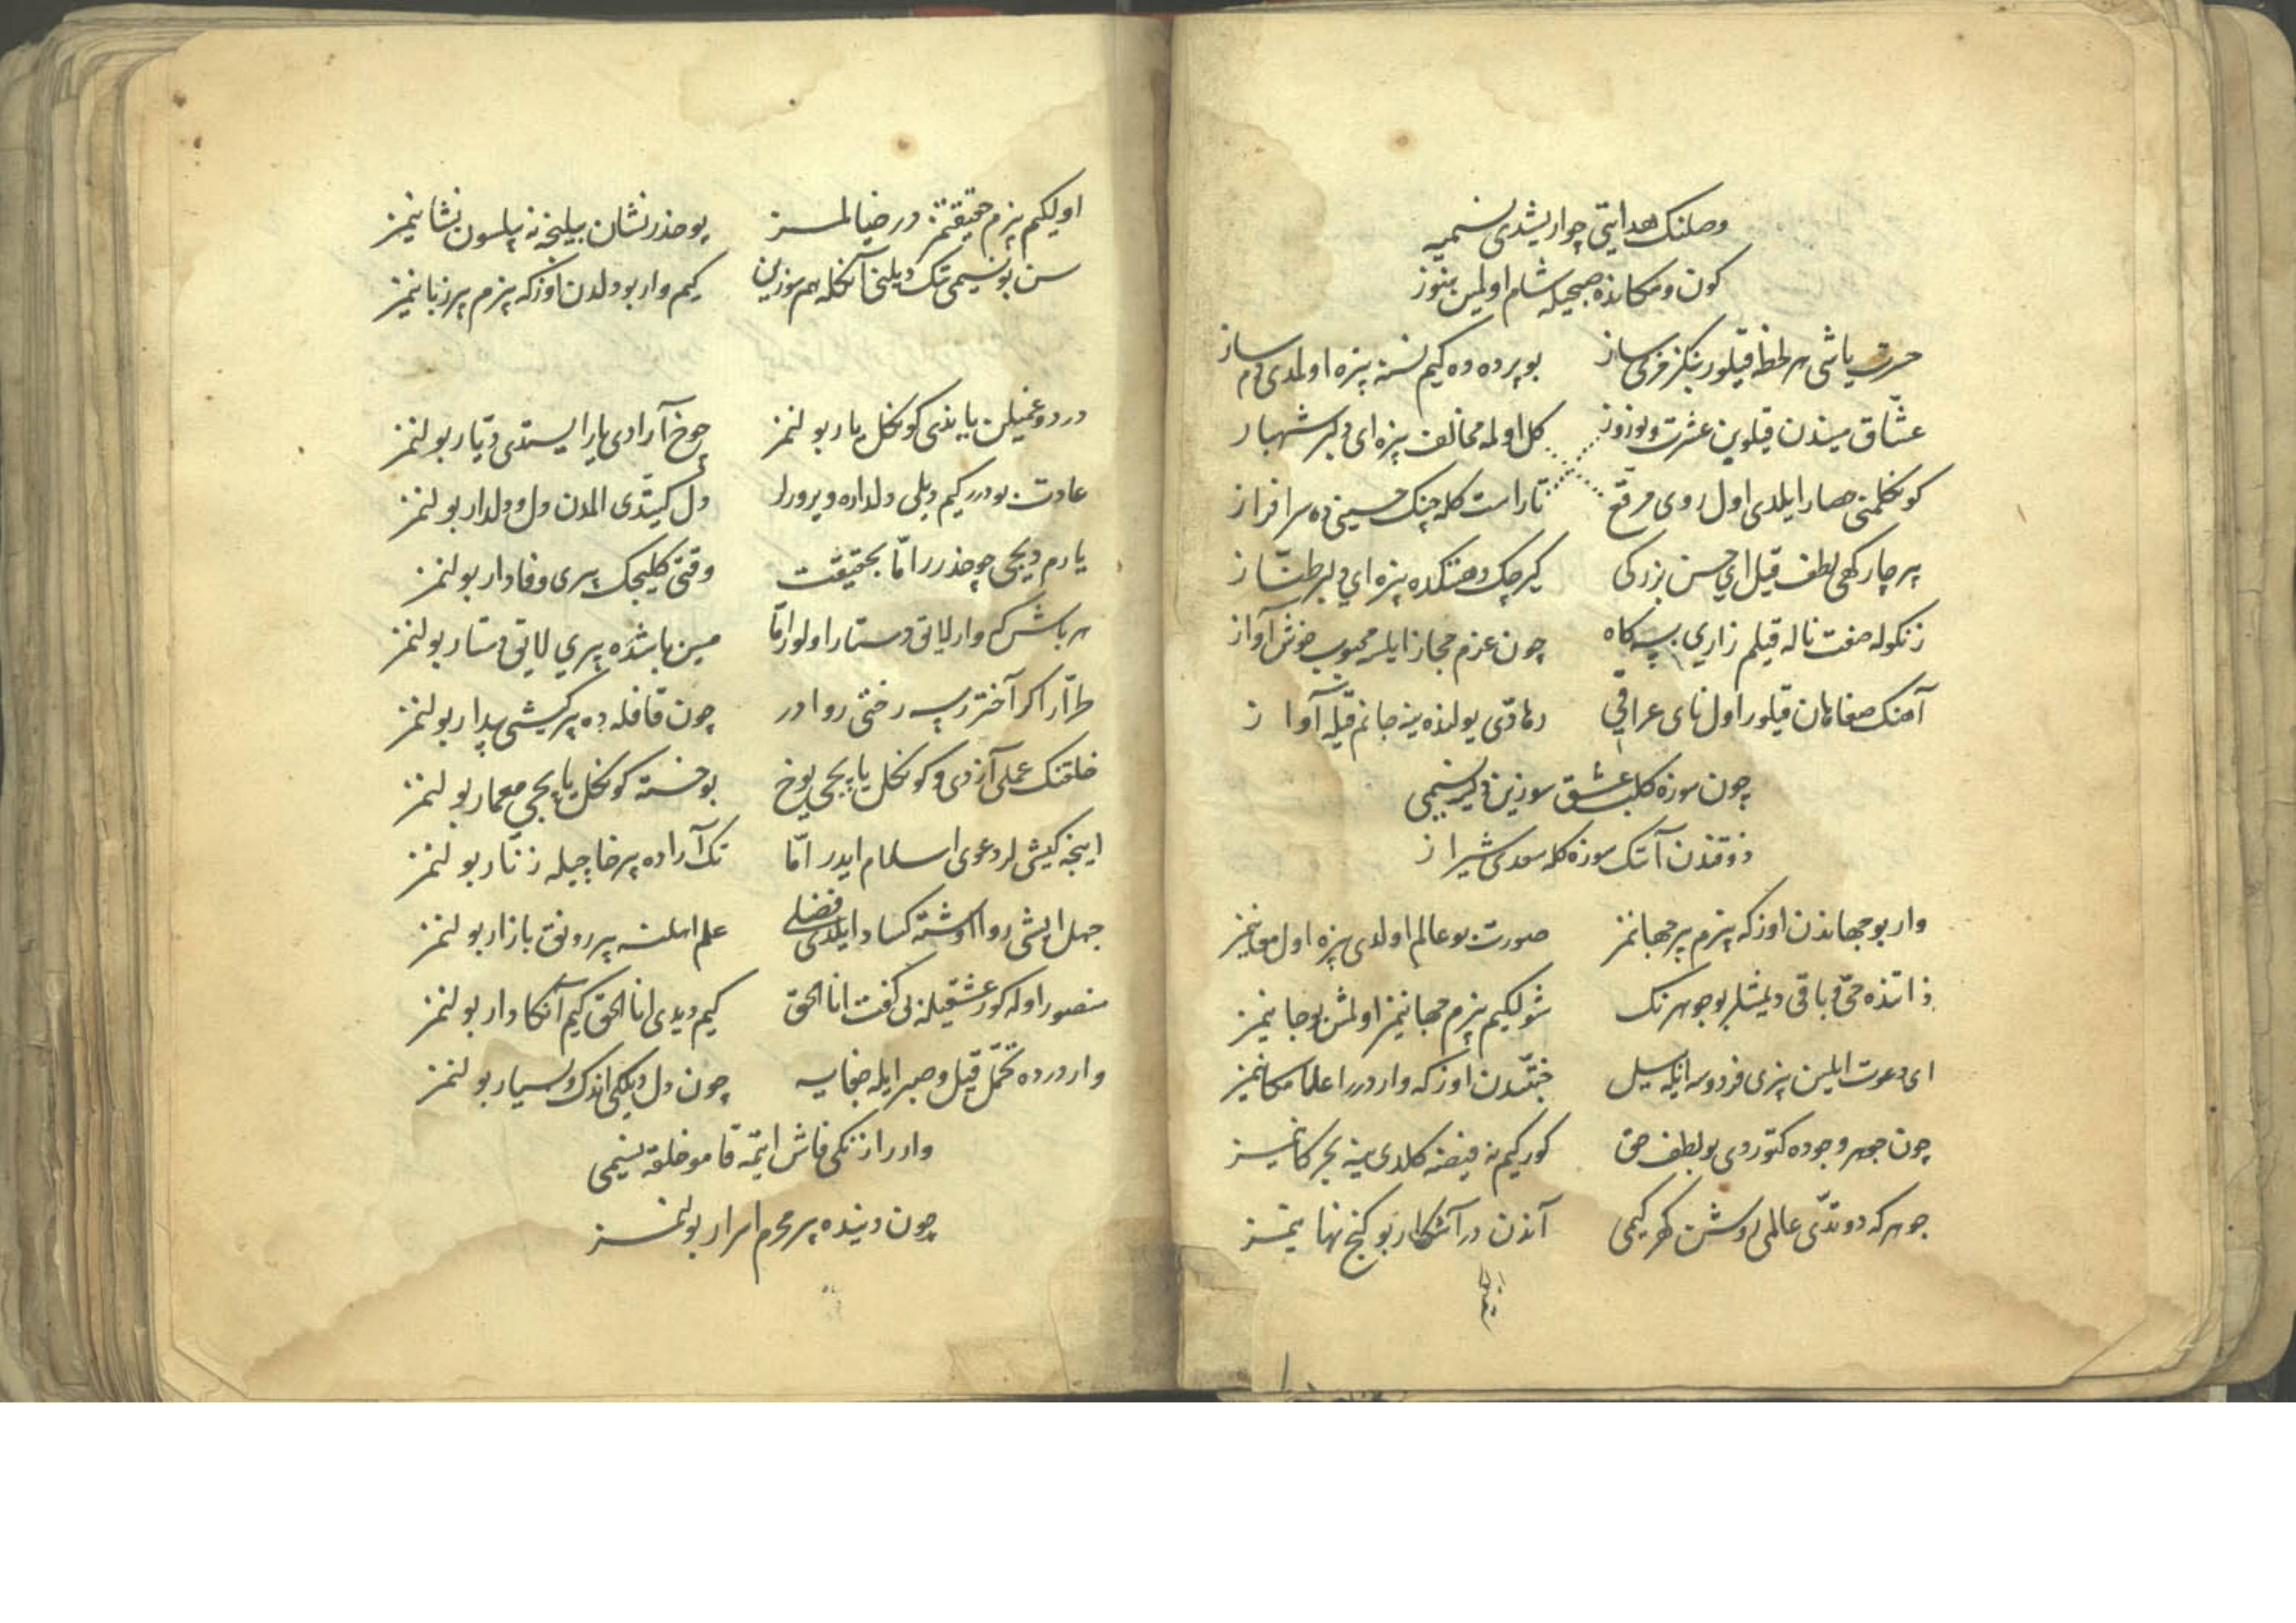 وصلنک هدایتی چو ایریشدی نسیمیه
کون و مکانده صبحیله شام اولمین هنوز
حسرت یاشی هر لحظه قیلور بنکز مزی ساز
بو پرده ده کیم نسنه بزه اولمدی دمساز
عشّاق میندن قیلوین عشرت نوروز
کل اوله مخالف بزه ای دلبر شهباز
کونکلمنی حصار ایلدی اول روی مرقّع
تا راست کله چنک حسینی ده سرافراز
بر چارکهی لطف قیل ای حسن بزرکی
کیرچک دهنکده بزه ای دلبر طنّاز
زنکوله صفت ناله قیلم زاری سه کاه
چون عزم حجاز ایلر محبوب خوش آواز
آهنک صفاهان قیلور اول نای عراقی
رهاوی یولنده ینه جانم قیله آواز
چون سوزه کلب عشق سوزین دیر نسیمی
ذوقندن آنک سوزه کله سعدی شیراز
وار بو جهاندن اوزکه بزم بر جهانمز
صورت بو عالم اولدی بزه اول معانیمز
ذاتنده حیّ و باقی دیمشلر بو جوهرنک
شولکیم بزم جهانیمز اولمش بو جانیمز
ای دعوت ایلین بزی فردوسه ایله سیل
جنّتدن اوزکه وار درر اعلا مکانمز
چون جوهر وجوده کتوردی بو لطف حق
کور کیم نه فیضنه کلدی ینه بحر کانیمز
جوهرکه دوتدّی عالمی روشن کهر کیمی
آندن در آشکار بو کنج نهانیمز
اولکیم بزم حقیقتمز در خیالمز
یوخدر نشان بیلنجه نه بیلسون نشانیمز
سن بو نسیمی تک دیلنی آنکله هم سوزین
کیم وار بو دلدن اوزکه بزم بر زبانیمز
درد و غمیلن یاندی کونکل یار بولنمز
چوخ آرادی یارا یستدی دیّار بولنمز
عادت بودر کیم دیلی دلداره ویرورلر
دل کیتدّی المدن دل و دلدار بولنمز
یارم دییجی چوخدرر امّا بحقیقت
وقتی کلیجک بری وفادار بولنمز
هر باش که وار لایق دستار اولور امّا
مین باشده بری لایق دستار بولنمز
طرّار اکر آختررسه رختی روادر
چون قافله ده بر کیشی بیدار بولنمز
خلقنک عملی آزدی و کونکل یاپیجی یوخ
بو خسته کونکل یاپیجی معمار بولنمز
اینجه کیشیلر دعوی اسلام ایدر امّا
تک آراده بر خاچیله زنّار بولنمز
جهل ایشی روا اوشته کساد ایلدی فضلی
علم اهلنه بر رونق بازار بولنمز
منصور اوله کور عشقیله بی کفت انا الحق
کیم دیدی انا الحق کیم آنکا دار بولنمز
وار درده تحمّل قیل و صبر ایله جفایه
چون دل دیلکی اندک و بسیار بولنمز
وار رازنکی فاش ایتمه قامو خلقه نسیمی
چون دنیده بر محرم اسرار بولنمز